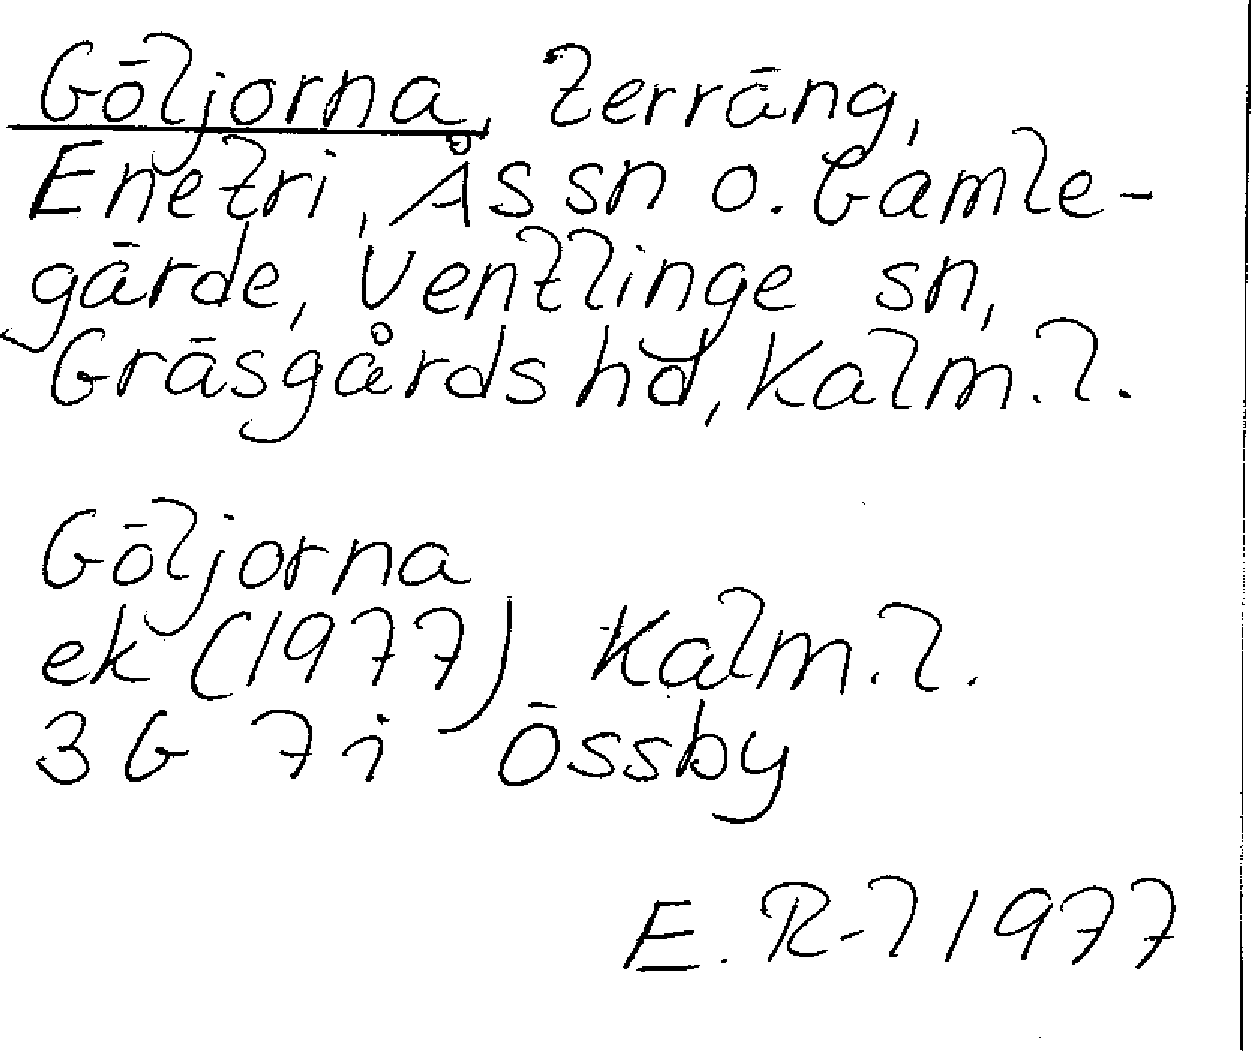 Göljorna, Terräng,
Enetri, Ås sn o. Gamle-
gärde, Ventlinge sn,
Gräsgårds hd, Kalm. l.
Göljorna
ek (1977) Kalm. l.
3G 7i Össby
E. R-l 1977